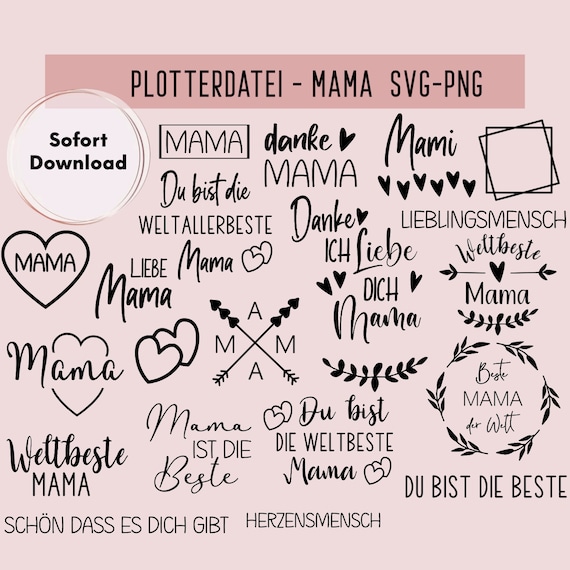 PLOTTERDATEI - MAMA SVG-PNG
Sofort
Download
MAMA
danke
MAMA
Mami
Du bist die
WELTALLERBESTE
Danke
ICH Liebe
DICH
Mama
LIEBLINGSMENSCH
MAMA
LIEBE
Mama
Mama
Weltbeste
Mama
A
M M
A
Mama
Beste
MAMA
der Welt
Weltbeste
MAMA
Mama
IST DIE
Beste
Du bist
DIE WELTBESTE
Mama
DU BIST DIE BESTE
SCHÖN DASS ES DICH GIBT
HERZENSMENSCH